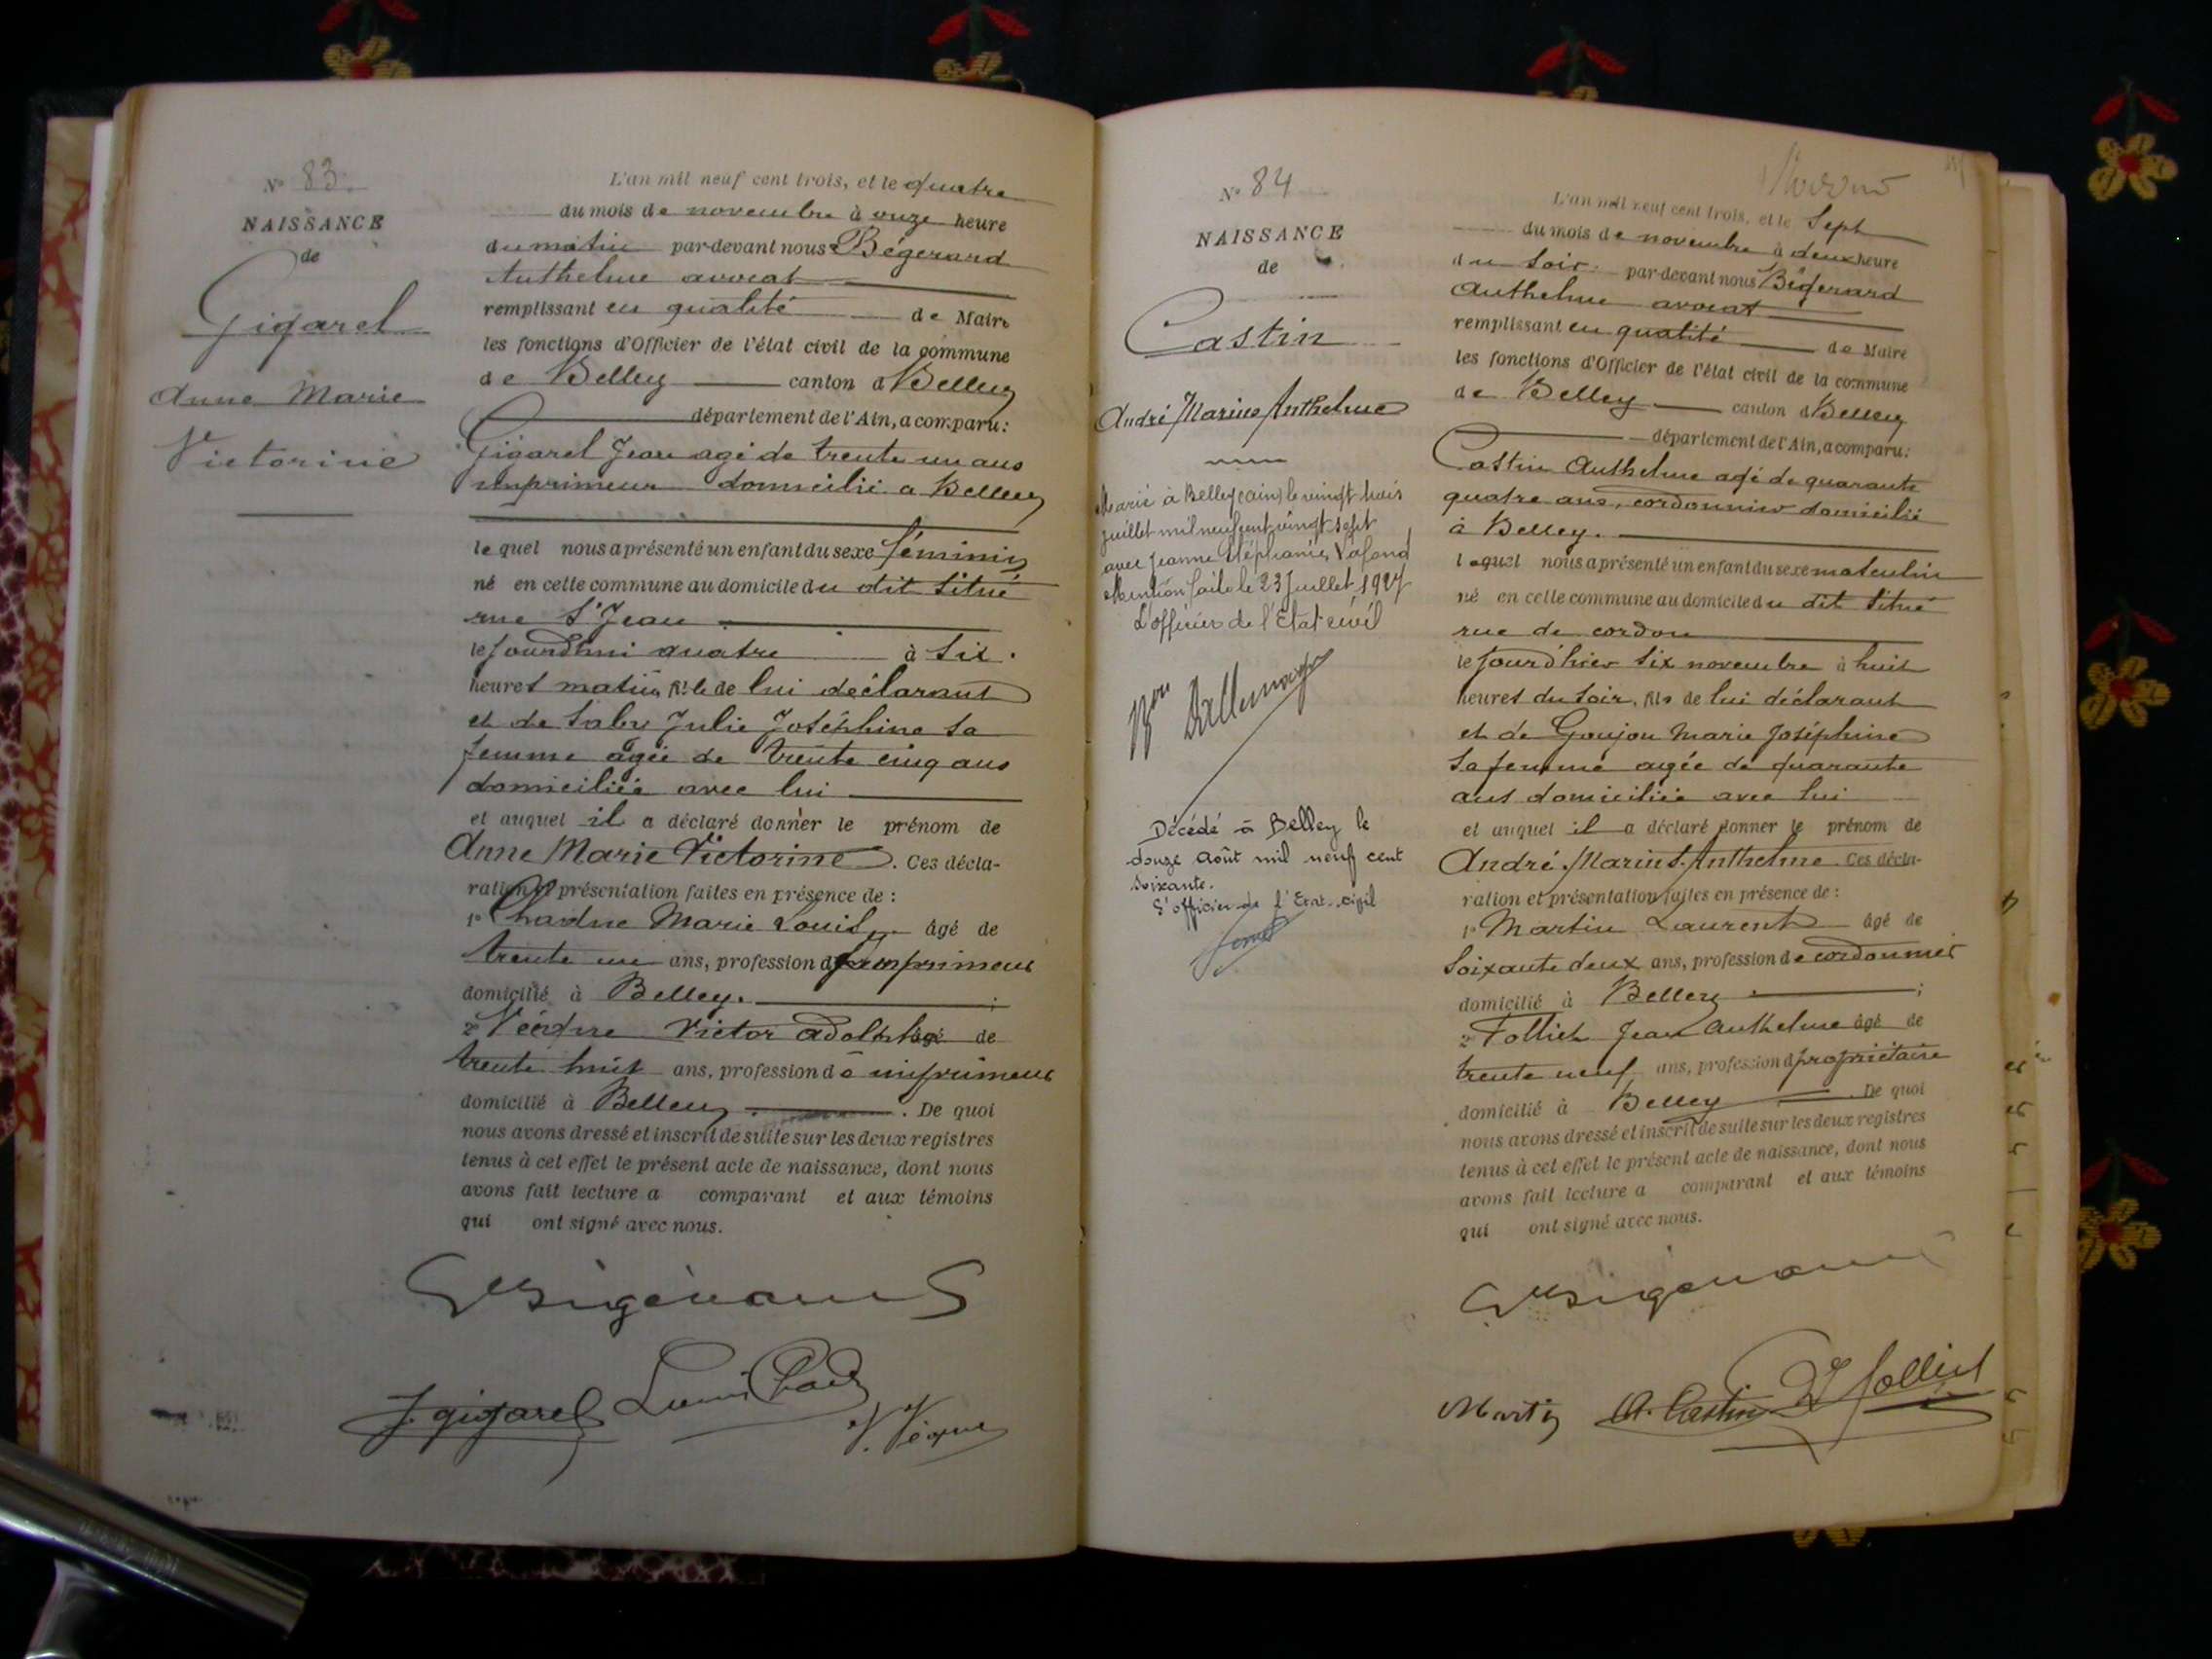 N° 83.
NAISSANCE
de
Gigarel
Anne Marie
Victorine
L'an mil neuf cent trois, et le quatre
du mois de novembre à onze heure
du matin par-devant nous Bégerard
Anthelme avocat
remplissant en qualité de Maire
les fonctions d'Officier de l'état civil de la commune
de Belley canton d Belley
département de l'Ain, a comparu:
Gigarel Jean agé de trente un ans
imprimeur domicilié a Belley
le quel nous a présenté un enfant du sexe féminin
né en cette commune au domicile du dit situé
rue St Jean
le jourdhui quatre à six
heures matin, fille de lui déclarant
et de Julie Joséphine sa
femme agée de trente cinq ans
domiciliée avec lui
et auquel il a déclaré donner le prénom de
Anne Marie Victorine. Ces décla-
ration et présentation faites en présence de :
1° Marie Louis âgé de
trente un ans, profession d imprimeur
domicilié à Belley. ;
2° Victor Adolphe âgé de
trente huit ans, profession de imprimeur
domicilié à Belley. De quoi
nous avons dressé et inscrit de suite sur les deux registres
tenus à cet effet le présent acte de naissance, dont nous
avons fait lecture a comparant et aux témoins
qui ont signé avec nous.
J. gigarel Louis
N° 84
NAISSANCE
de
Castin
André Marius Anthelme
Marié à Belley (ain) le vingt trois
juillet mil neuf cent vingt sept
avec Jeanne Stéphanie Lafond
Mention faite le 23 Juillet 1927
L'officier de l'Etat civil
Décédé à Belley le
douze Août mil neuf cent
soixante.
L'officier de l'Etat-civil
L'an mil neuf cent trois, et le Sept
du mois de novembre à deux heure
du soir. par-devant nous Bégerard
Anthelme avocat
remplissant en qualité de Maire
les fonctions d'Officier de l'état civil de la commune
de Belley canton d Belley
département de l'Ain, a comparu:
Castin Anthelme agé de quarante
quatre ans, cordonnier domicilié
à Belley.
lequel nous a présenté un enfant du sexe masculin
né en cette commune au domicile du dit situé
rue de cordon
le jourd'hier six novembre à huit
heures du soir, fils de lui déclarant
et de Goujon Marie Joséphine
sa femme agée de quarante
ans domiciliée avec lui
et auquel il a déclaré donner le prénom de
André Marius Anthelme Ces décla-
ration et présentation faites en présence de :
1° Martin Laurent âgé de
soixante deux ans, profession de cordonnier
domicilié à Belley ;
2° Folliet Jean Anthelme âgé de
trente neuf ans, profession d propriétaire
domicilié à Belley. De quoi
nous avons dressé et inscrit de suite sur les deux registres
tenus à cet effet le présent acte de naissance, dont nous
avons fait lecture a comparant et aux témoins
qui ont signé avec nous.
Martin A. Castin Folliet